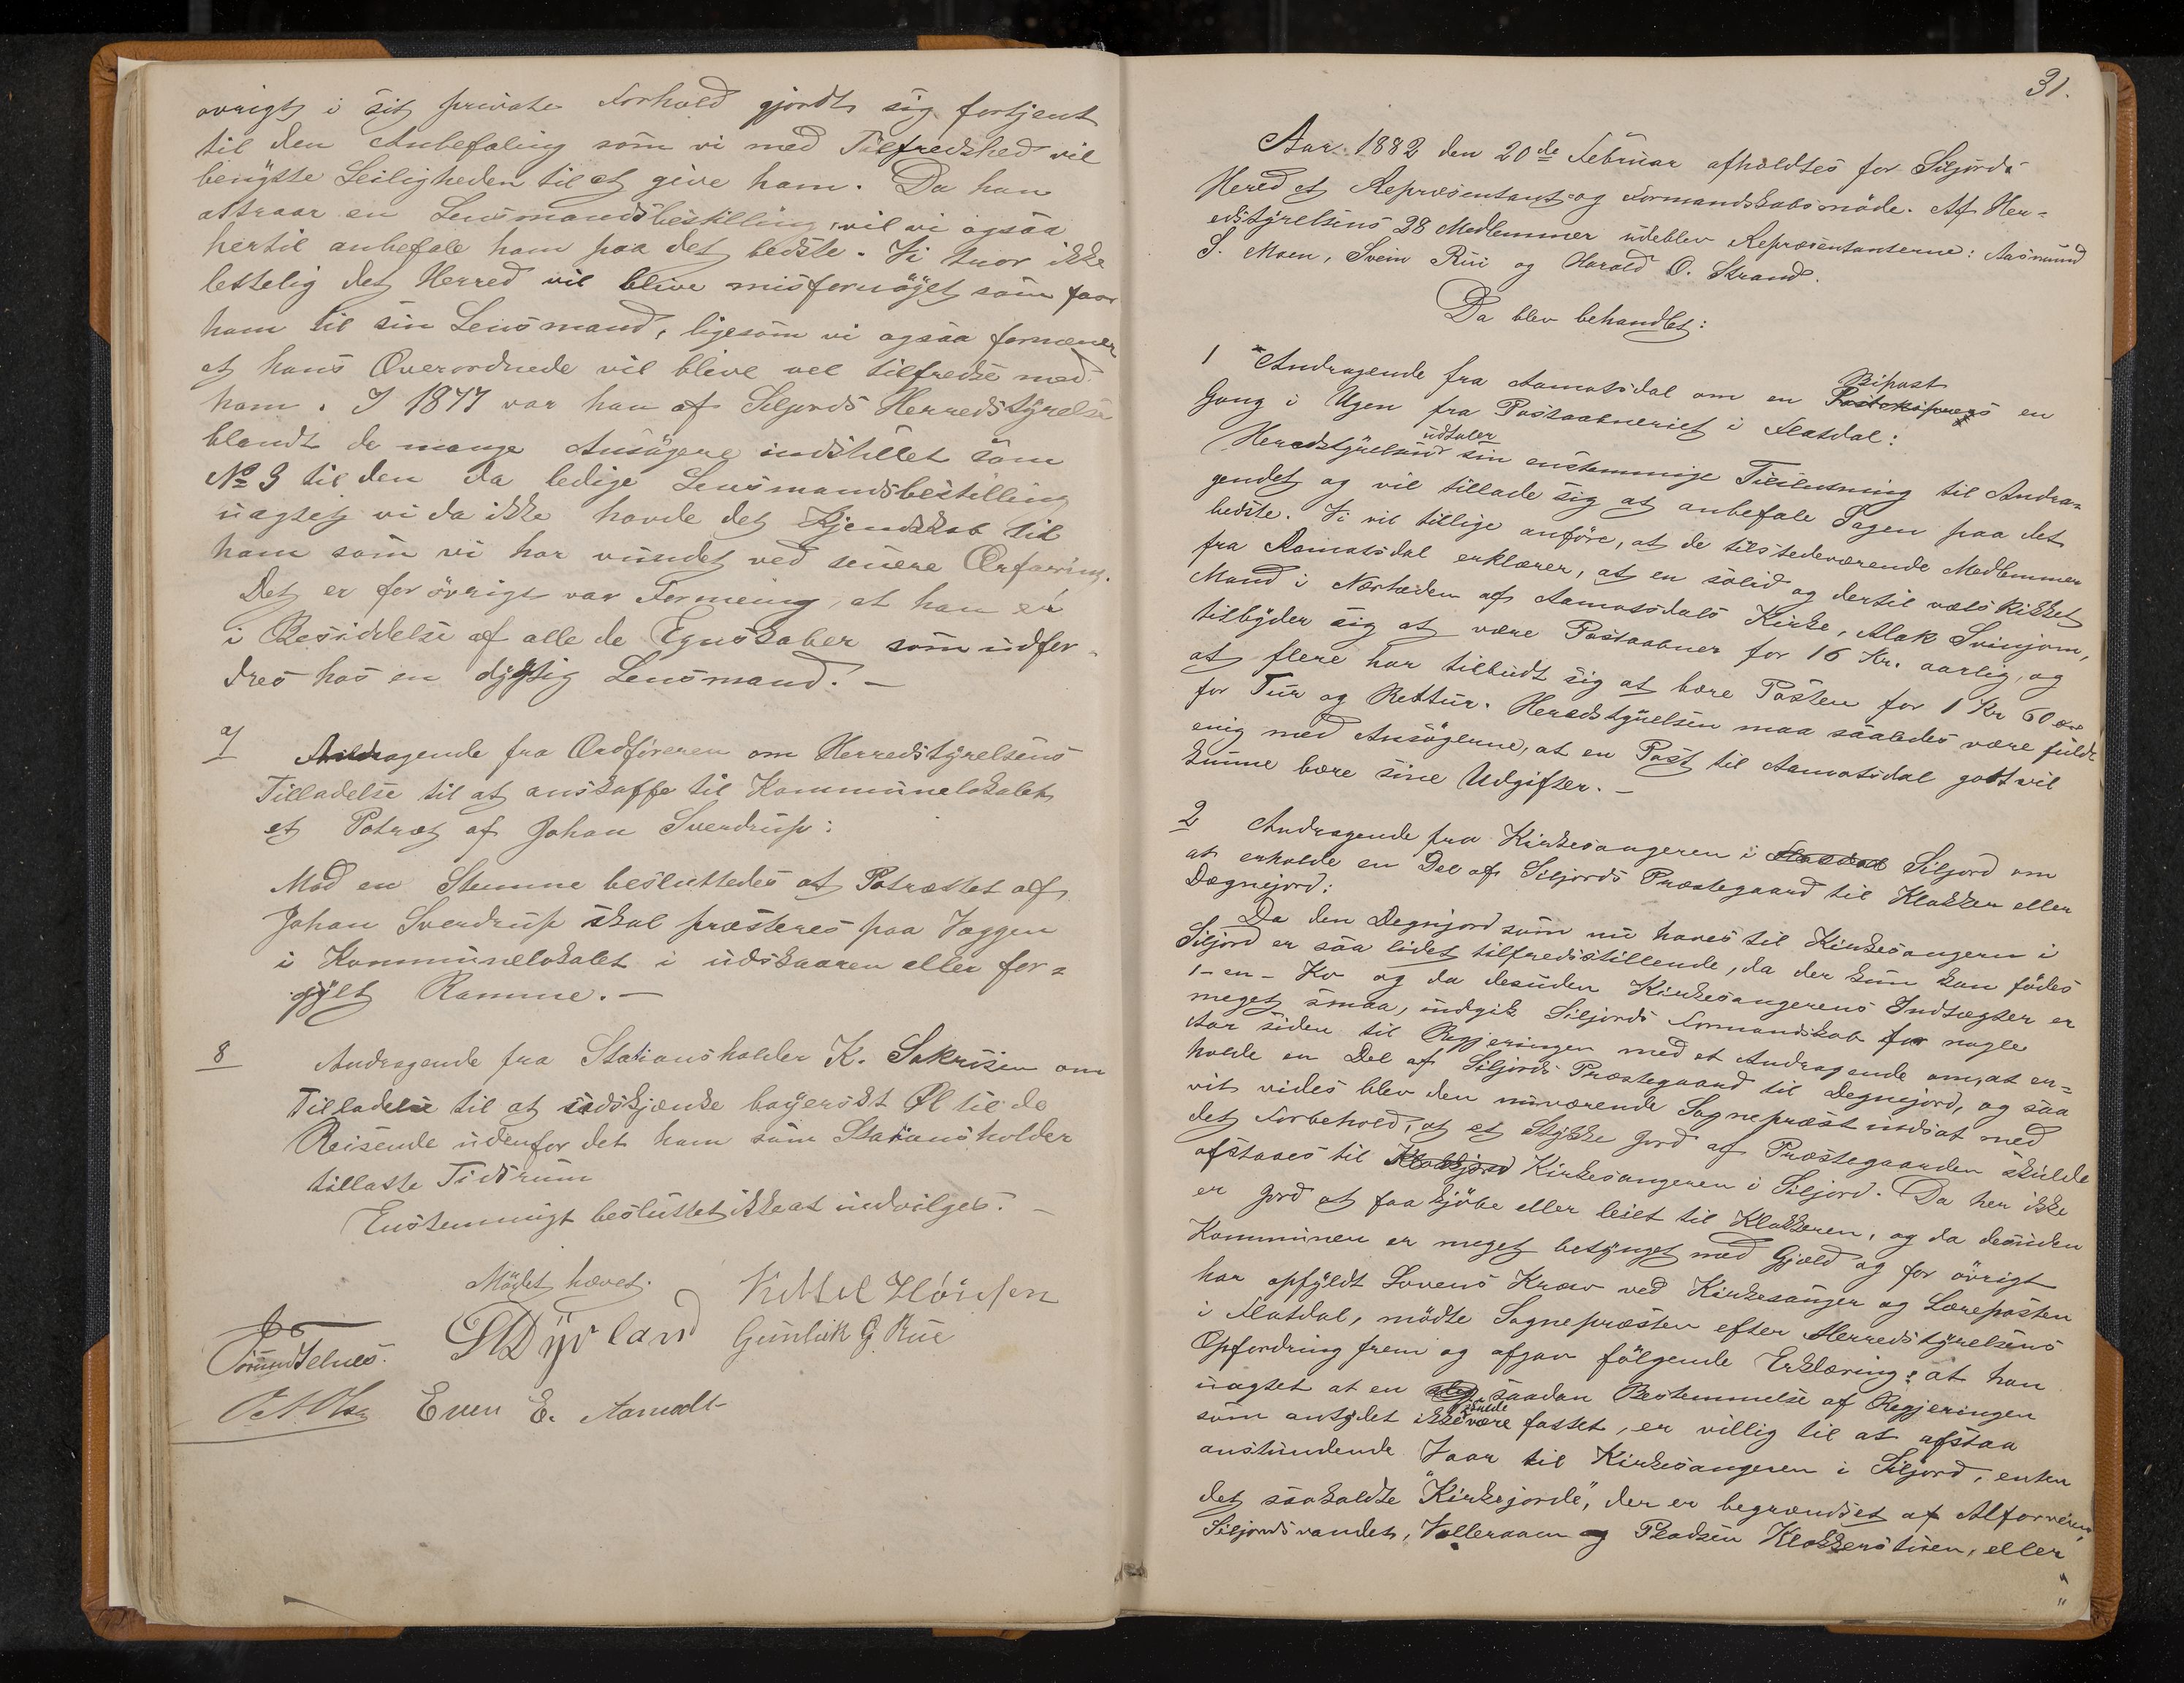 øvrigt i sit private Forhold gjordt sig fortjent
til den Anbefaling som vi med Tilfredshed vil
benytte Leiligheden til at give ham. Da han
attraar en Lensmandsbestilling, vil vi ogsaa
hertil anbefale ham paa det bedste. Vi tror ikke
lettelig det Herred vil blive misfornøyet som faar
ham til sin Lensmand, ligesom vi ogsaa formener
at hans Overordnede vil blive vel tilfredse med
ham. I 1877 var han af Siljords Herredstyrelse
blandt de mange Ansøgere indstillet som
No 3 til den da ledige Lensmandsbestilling
uagtet vi da ikke havde det Kjendskab til
ham som vi har vundet ved senere Erfaring.
Det er forøvrigt vor Formening, at han er
i Besiddelse af alle de Egenskaber som udfor-
dres hos en dygtig Lensmand. —
7 Andragende fra Ordføreren om Herredstyrelsens
Tilladelse til at anskaffe til Kommunelokalet
et Potræt af Johan Sverdrup:
Mod en Stemme besluttedes at Potrættet af
Johan Sverdrup skal præsteres paa Væggen
i Kommunelokalet i udskaaren eller for-
gyldt Ramme. —
8 Andragende fra Stationsholder K. Sakrisen om
Tilladelse til at udskjænke bayerskt Øl til de
Reisende udenfor det ham som Stationsholder
tillatte Tidsrum
Enstemmigt besluttet ikke at indvilges. —
Mødet hævet.
Kittel
Dyrland Gunleik G. Rue
Even E. Aamodt
31.
Aar 1882 den 20de Februar afholdtes for Siljords
Hered et Repræsentant- og Formandskabsmøde. Af Her-
edstyrelsens 28 Medlemmer udeblev Repræsentanterne: Aasmund
S. Moen, Svein Rui og Harald O. Strand.
Da blev behandlet:
1 Andragende fra Aamotsdal om en Bipost en
Gang i Ugen fra Postaabneriet i Flatdal:
Heredstyrelsen udtaler sin enstemmige Tilslutning til Andra-
gendet og vil tillade sig at anbefale Sagen paa det
bedste. Vi vil tillige anføre, at de tilstedeværende Medlemmer
fra Aamotsdal erklærer, at en solid og dertil vel skikket
Mand i Nærheden af Aamotsdals Kirke, Alak Svinjom,
tilbyder sig at være Postaabner for 16 Kr. aarlig, og
at flere har tilbudt sig at bære Posten for 1 Kr 60 øre
for Tur og Rettur. Heredstyrelsen maa saaledes være fuldt
enig med Ansøgerne, at en Post til Aamotsdal godt vil
kunne bære sine Udgifter. —
2 Andragende fra Kirkesangeren i Siljord om
at erholde en Del af Siljords Præstegaard til Klokker eller
Degnejord:
Da den Degnjord som nu haves til Kirkesangeren i
Siljord er saa lidet tilfredsstillende, da der kun kan fødes
1 - en - Ko og da desuden Kirkesangerens Indtægter er
meget smaa, indgik Siljords Formandskab for nogle
Aar siden til Regjeringen med et Andragende om, at er-
holde en Del af Siljords Præstegaard til Degnejord, og saa
vit vides blev den nuværende Sognepræst indsat med
det Forbehold, at et Stykke Jord af Præstegaarden skulde
afstaaes til Klokkjord Kirkesangeren i Siljord. Da her ikke
er Jord at faa kjøbe eller leiet til Klokkeren, og da desuden
Kommunen er meget betynget med Gjæld og for øvrigt
har opfyldt Lovens Krav ved Kirkesanger og Lærerposten
i Flatdal, mødte Sognepræsten efter Herredstyrelsens
Opfordring frem og afgav følgende Erklæring: at han
uagtet at en saadan Bestemmelse af Regjeringen
som antydet ikke skulde være fattet, er villig til at afstaa
anstundende Vaar til Kirkesangeren i Siljord, enten
det saakaldte "Kirkejorde", der er begrændset af Alfarveien,
Siljordsvandet, Valleraaen og Pladsen Klokkerstuen, eller